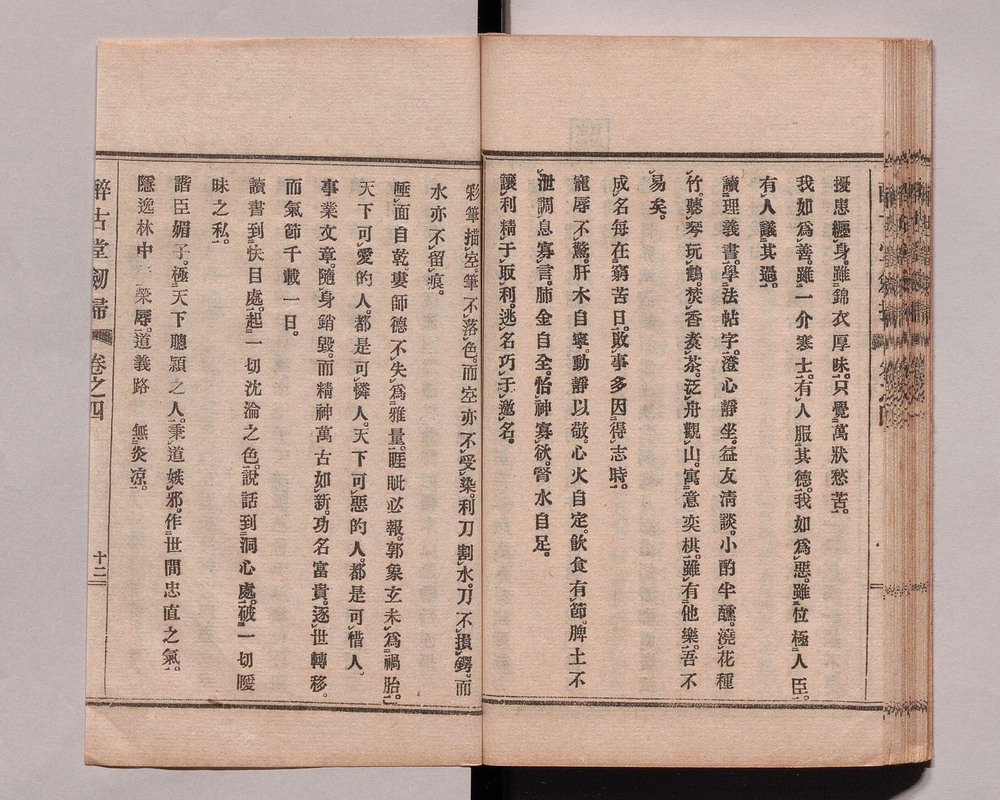 擾患纒身。雖錦衣厚味。只覺萬狀愁苦。
我如爲善。雖一介寒士。有人服其德。我如爲惡。雖位極人臣。
有人議其過。
讀理義書。學法帖字。澄心靜坐。益友淸談。小酌半醺。澆花種
竹。聽琴玩鶴。焚香煑茶。泛舟觀山。寓意奕棋。雖有他樂。吾不
易矣。
成名每在窮苦日。敗事多因得志時。
寵辱不驚。肝木自寧。動靜以敬。心火自定。飮食有節。脾土不
泄。調息寡言。肺金自全。怡神寡欲。腎水自足。
讓利精于取利。逃名巧于邀名。
彩筆描空。筆不落色。而空亦不受染。利刀割水。刀不損鍔。而
水亦不留痕。
唾面自乾。婁師德不失爲雅量。睚眦必報。郭象玄未爲禍胎。
天下可愛的人。都是可憐人。天下可惡的人。都是可惜人。
事業文章。隨身銷毀。而精神萬古如新。功名富貴。逐世轉移。
而氣節千載一日。
讀書到快目處。起一切沈淪之色。說話到洞心處。破一切曖
昧之私。
諧臣媚子。極天下聰頴之人。秉道嫉邪。作世間忠直之氣。
隱逸林中 榮辱。道義路 無炎凉。
醉古堂劒掃 卷之四 十二